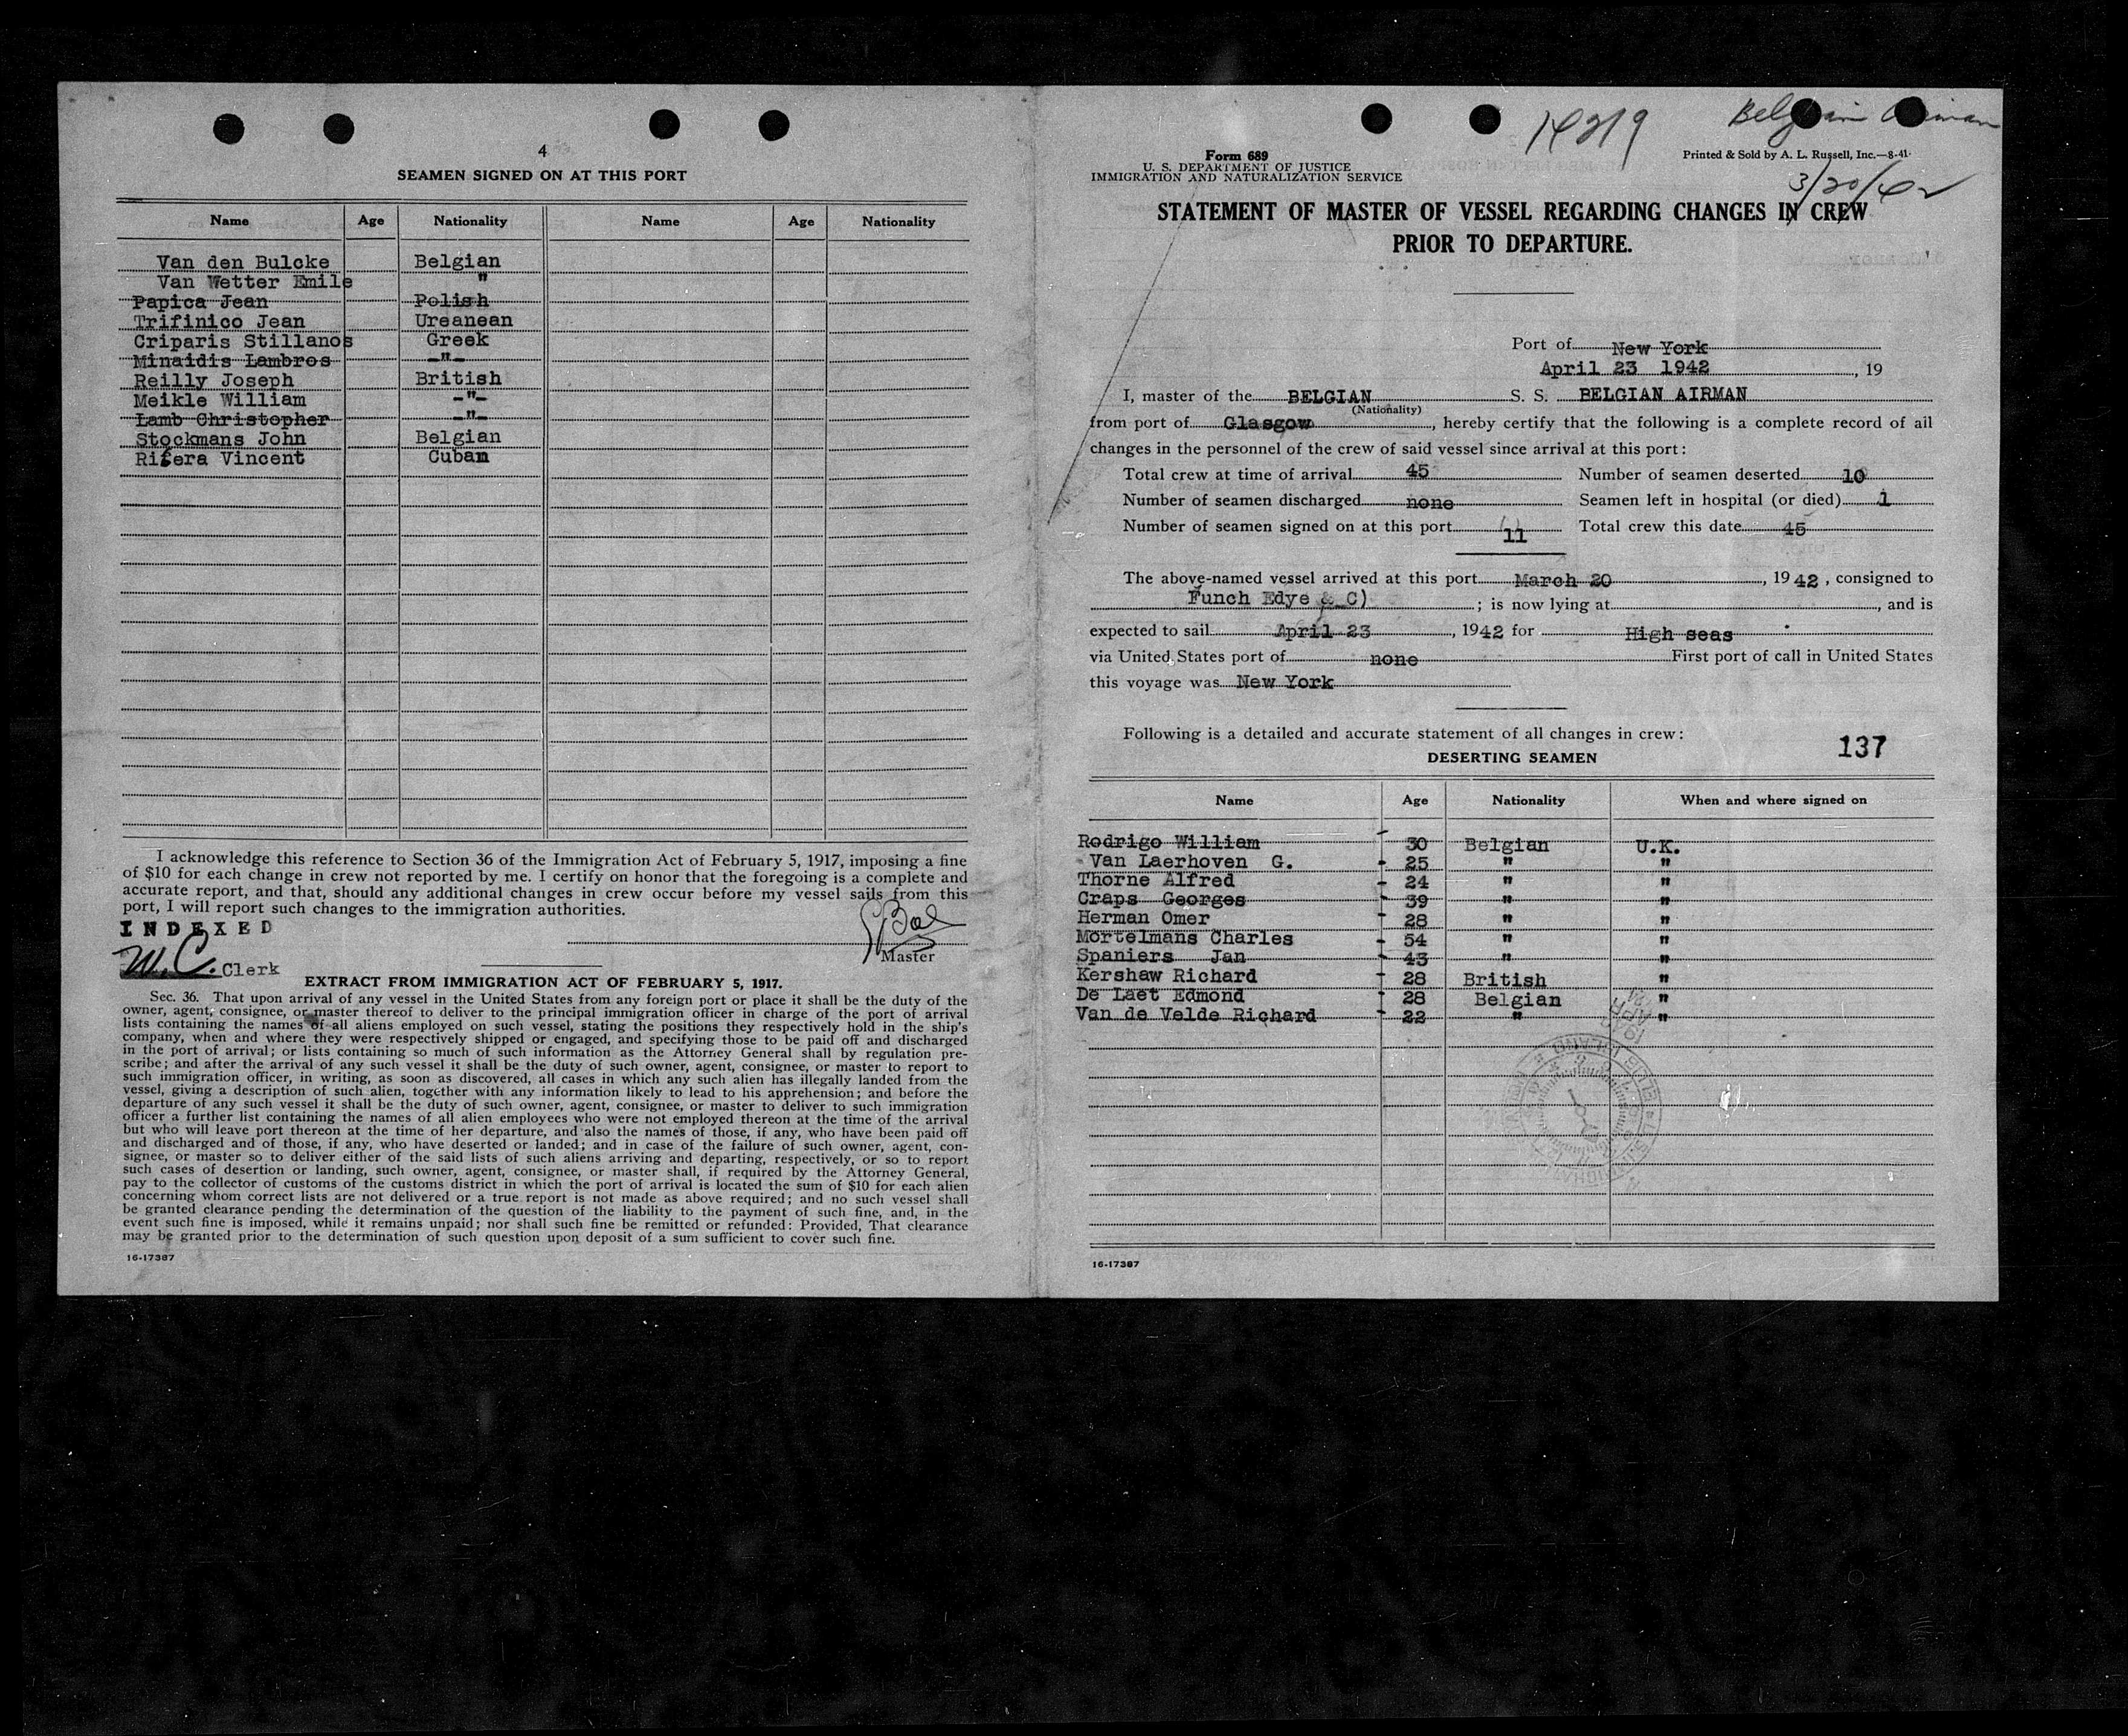 4
SEAMEN SIGNED ON AT THIS PORT
Name Age Nationality Name Age Nationality
Van den Bulcke Belgian
Van Wetter Emile "
Papica Jean Polish
Trifinico Jean Ureanean
Criparis Stillanos Greek
Minaidis Lambros -"-
Reilly Joseph British
Meikle William -"-
Lamb Christopher -"-
Stockmans John Belgian
Rifera Vincent Cuban
I acknowledge this reference to Section 36 of the Immigration Act of February 5, 1917, imposing a fine
of $10 for each change in crew not reported by me. I certify on honor that the foregoing is a complete and
accurate report, and that, should any additional changes in crew occur before my vessel sails from this
port, I will report such changes to the immigration authorities.
INDEXED
W.C. Clerk
Master
EXTRACT FROM IMMIGRATION ACT OF FEBRUARY 5, 1917.
Sec. 36. That upon arrival of any vessel in the United States from any foreign port or place it shall be the duty of the
owner, agent, consignee, or master thereof to deliver to the principal immigration officer in charge of the port of arrival
lists containing the names of all aliens employed on such vessel, stating the positions they respectively hold in the ship's
company, when and where they were respectively shipped or engaged, and specifying those to be paid off and discharged
in the port of arrival; or lists containing so much of such information as the Attorney General shall by regulation pre-
scribe; and after the arrival of any such vessel it shall be the duty of such owner, agent, consignee, or master to report to
such immigration officer, in writing, as soon as discovered, all cases in which any such alien has illegally landed from the
vessel, giving a description of such alien, together with any information likely to lead to his apprehension; and before the
departure of any such vessel it shall be the duty of such owner, agent, consignee, or master to deliver to such immigration
officer a further list containing the names of all alien employees who were not employed thereon at the time of the arrival
but who will leave port thereon at the time of her departure, and also the names of those, if any, who have been paid off
and discharged and of those, if any, who have deserted or landed; and in case of the failure of such owner, agent, con-
signee, or master so to deliver either of the said lists of such aliens arriving and departing, respectively, or so to report
such cases of desertion or landing, such owner, agent, consignee, or master shall, if required by the Attorney General,
pay to the collector of customs of the customs district in which the port of arrival is located the sum of $10 for each alien
concerning whom correct lists are not delivered or a true report is not made as above required; and no such vessel shall
be granted clearance pending the determination of the question of the liability to the payment of such fine, and, in the
event such fine is imposed, while it remains unpaid; nor shall such fine be remitted or refunded: Provided, That clearance
may be granted prior to the determination of such question upon deposit of a sum sufficient to cover such fine.
16-17387
Belgian Airman
Form 689
U. S. DEPARTMENT OF JUSTICE
IMMIGRATION AND NATURALIZATION SERVICE
Printed & Sold by A. L. Russell, Inc.—8-41
3/20/42
STATEMENT OF MASTER OF VESSEL REGARDING CHANGES IN CREW
PRIOR TO DEPARTURE.
Port of New York
April 23 1942, 19
I, master of the BELGIAN S. S. BELGIAN AIRMAN
(Nationality)
from port of Glasgow, hereby certify that the following is a complete record of all
changes in the personnel of the crew of said vessel since arrival at this port:
Total crew at time of arrival 45 Number of seamen deserted 10
Number of seamen discharged none Seamen left in hospital (or died) 1
Number of seamen signed on at this port 11 Total crew this date 45
The above-named vessel arrived at this port March 20, 1942, consigned to
Funch Edye & C); is now lying at, and is
expected to sail April 23, 1942 for High seas
via United States port of none First port of call in United States
this voyage was New York
Following is a detailed and accurate statement of all changes in crew:
137
DESERTING SEAMEN
Name Age Nationality When and where signed on
Rodrigo William - 30 Belgian U.K.
Van Laerhoven G. - 25 " "
Thorne Alfred - 24 " "
Craps Georges - 39 " "
Herman Omer - 28 " "
Mortelmans Charles - 54 " "
Spaniers Jan - 43 " "
Kershaw Richard - 28 British "
De Laet Edmond - 28 Belgian "
Van de Velde Richard - 22 " "
16-17387